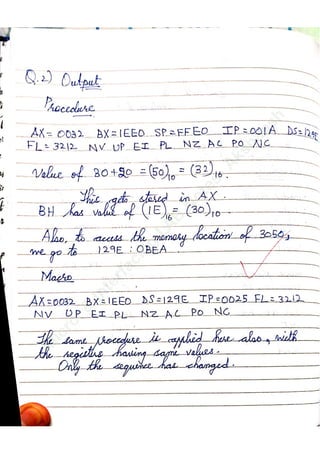 Q.2) Output
Procedure
AX= 0032 BX=1EE0 SP=FFE0 IP=001A DS=129E
FL= 3212 NV UP EI PL NZ AC PO NC
Value of 30+20 = (50)10 = (32)16.
This gets stored in AX.
BH has value of (1E)16 = (30)10.
Also, to access the memory location of 3050,
we go to 129E : 0BEA.
Macro
AX=0032 BX=1EE0 DS=129E IP=0025 FL=3212
NV UP EI PL NZ AC PO NC
The same procedure is applied here also, with
the registers having same values.
Only the sequence has changed.